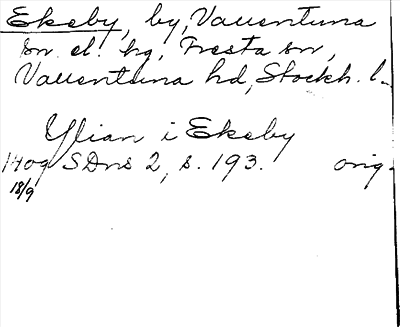 Ekeby, by, Vallentuna
sn el. hg, Fresta sn,
Vallentuna hd, Stockh. l.
Ylian i Ekeby
1409 SDns 2, s. 193. orig.
18/9